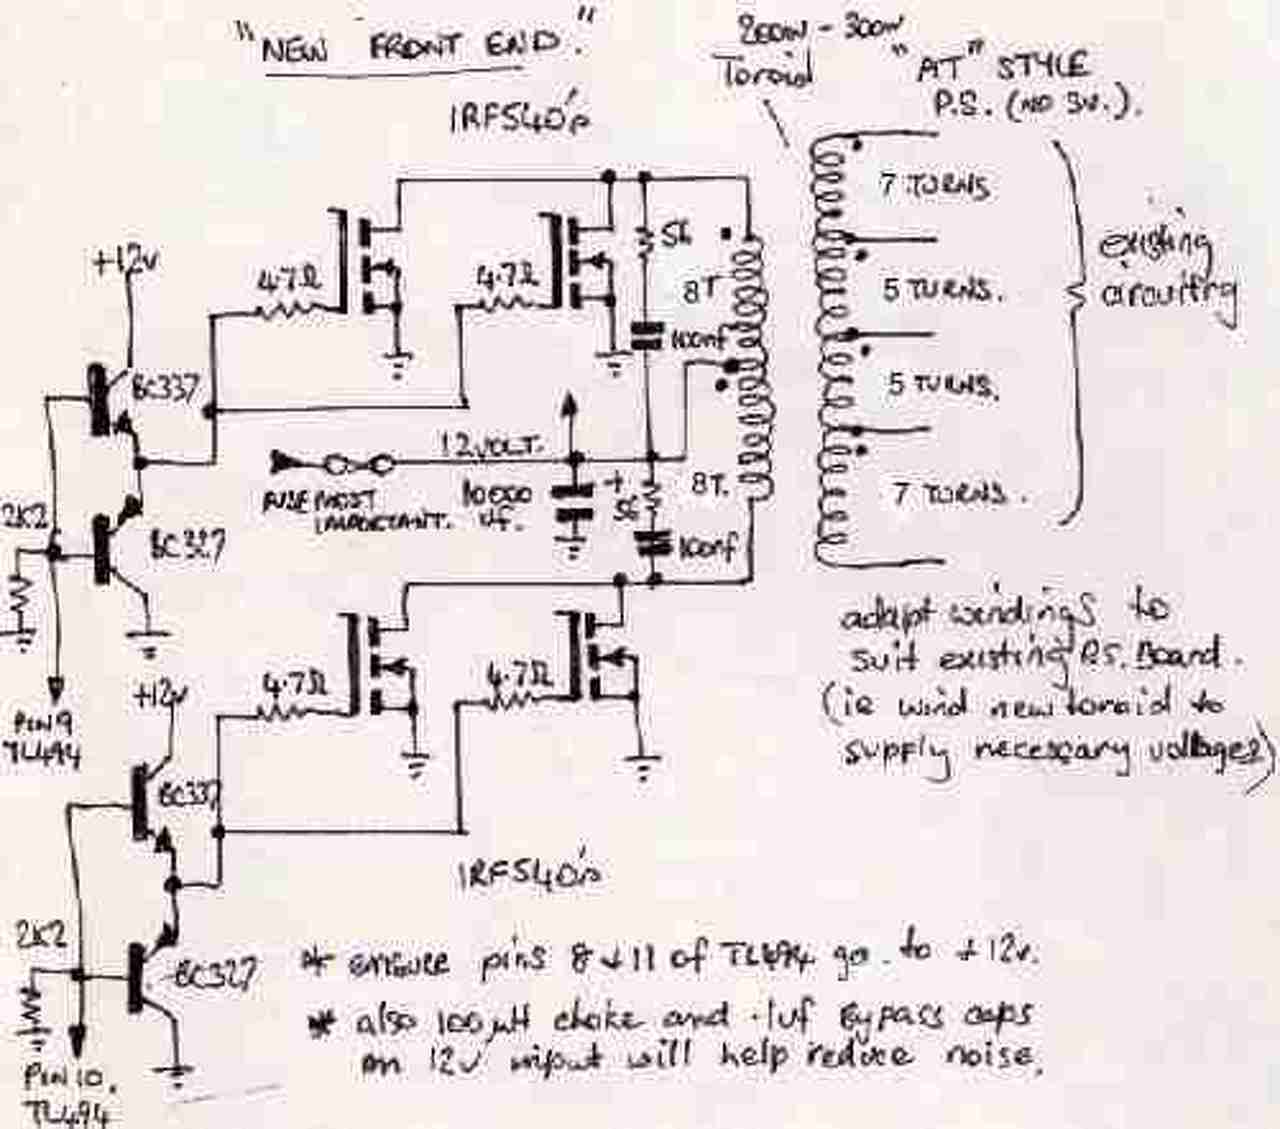 "NEW FRONT END."
200W - 300W
Toroid
"AT" STYLE
P.S. (NO 3V.).
IRF540's
7 TURNS.
+12v
4.7Ω
4.7Ω
56
8T
existing
circuitry
5 TURNS.
100nf
BC337
5 TURNS.
12 VOLT.
FUSE MOST
IMPORTANT.
10000
uf.
+
56
8T.
7 TURNS.
2K2
BC327
100nf
adapt windings to
suit existing P.S. Board.
(ie wind new toroid to
supply necessary voltages)
+12v
4.7Ω
4.7Ω
PIN 9
TL494
BC337
IRF540's
2K2
BC327
* ensure pins 8 + 11 of TL494 go to +12v.
* also 100µH choke and .1uf Bypass caps
on 12v input will help reduce noise.
PIN 10.
TL494